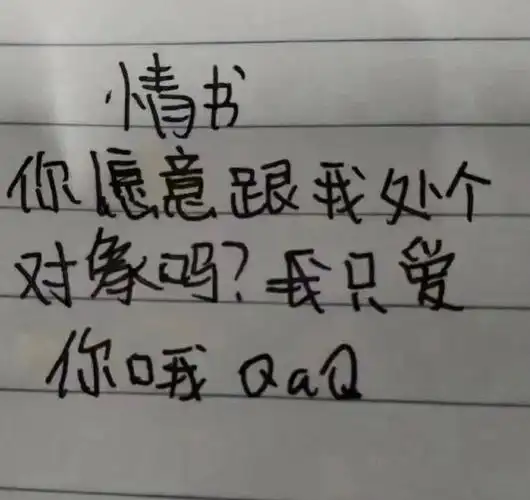 情书
你愿意跟我处个
对象吗?我只爱
你哦 QaQ